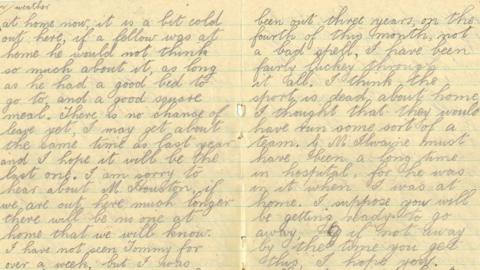 weather
at home now, it is a bit cold
out here, if a fellow was at
home he would not think
so much about it, as long
as he had a good bed to
go to, and a good square
meal. There is no chance of
leave yet, I may get about
the same time as last year
and I hope it will be the
last one. I am sorry to
hear about M Houston, if
we are out here much longer
there will be no one at
home that we will know.
I have not seen Tommy for
over a week, but I was
been out three years, on the
fourth of this month, not
a bad spell, I have been
fairly luckey through
it all. I think the
sport is dead about home
I thought that they would
have run some sort of a
team. McIlwaine must
have been a long time
in hospital, for he was
in it when I was at
home. I suppose you will
be getting ready to go
away, if not away
by the time you get
this, I hope you.